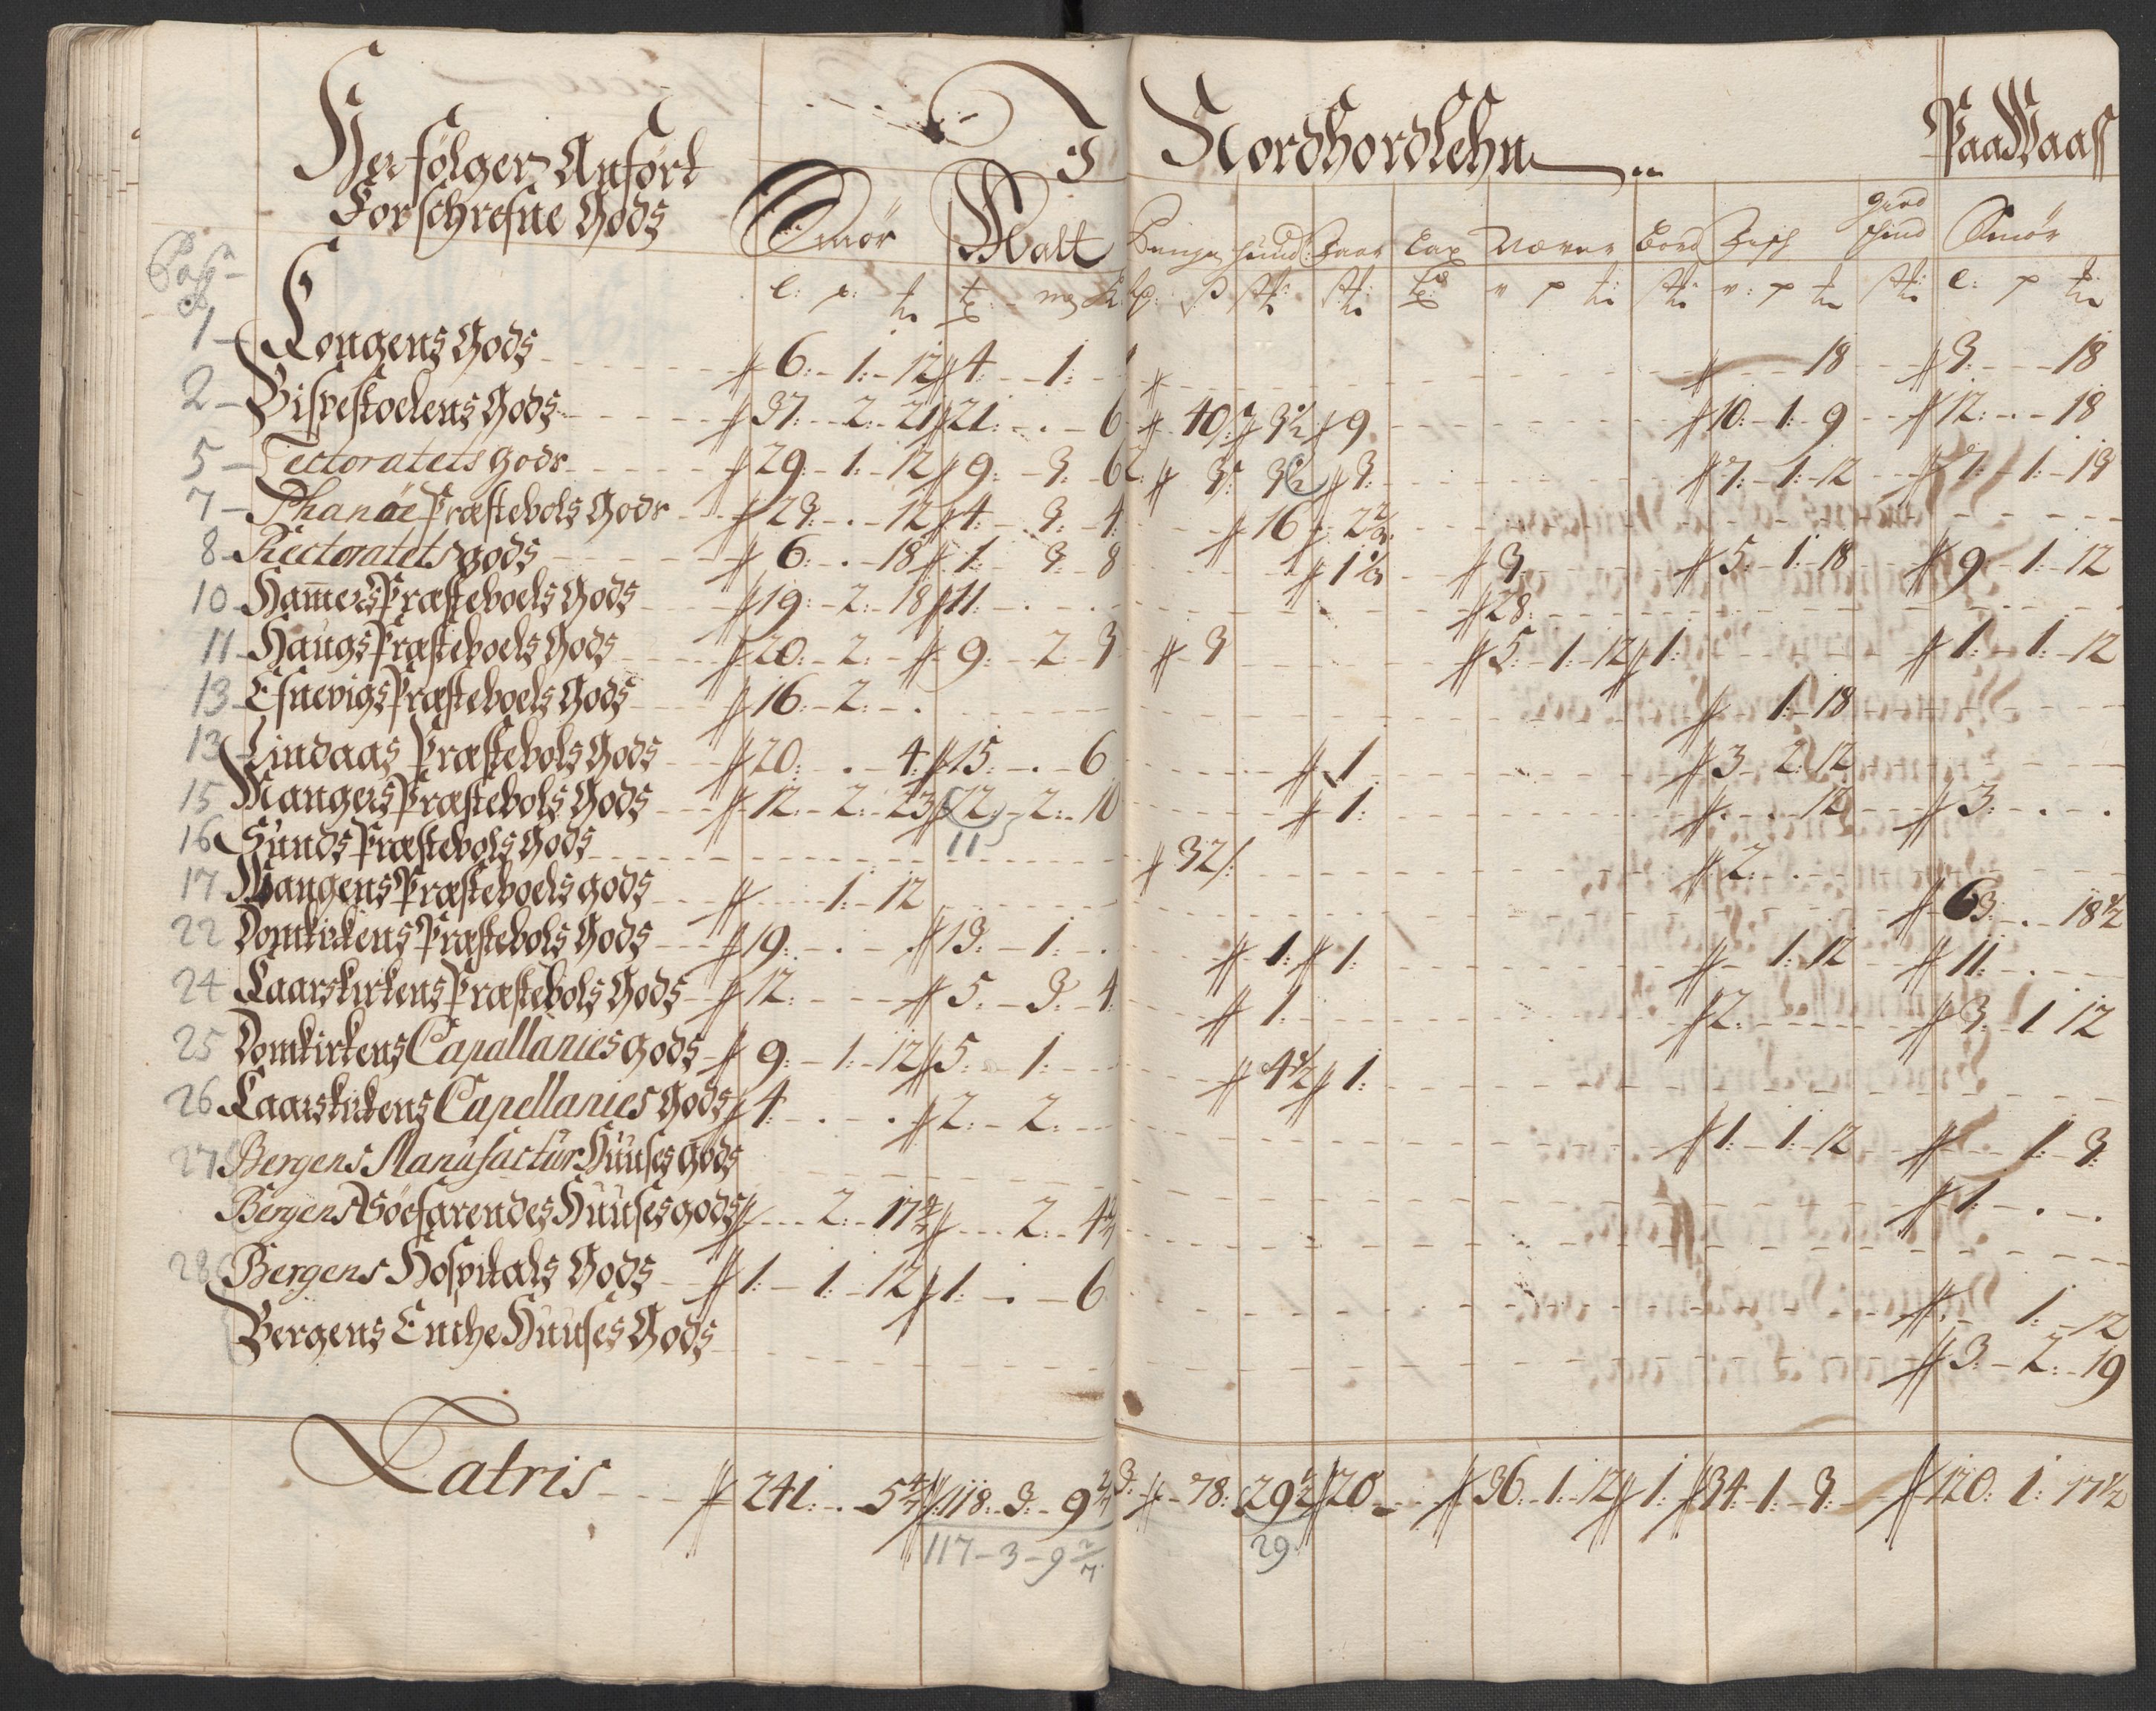 I Nordhordlehn
Paa Waass
Her følger Anført
Forschrefne Gods
Smör Malt Penge hund Faar Lax Varer Bord Fisch Smör
Pag
1 Kongens Gods 6: 1: 12 4 1: 18 3: 18
2 Bispestoelens Gods 37: 2: 21 21: . 6 40 3½ 9 10: 1: 9 12: . 18
5 Lectoratets gods 29: 1: 12 9: 3: 6 3 3½ 3: 7: 1: 12 7: 1: 13
7 Phanøe Præstebols Gods 23: . 12 4 3: 4 16 2
8 Rectoratets gods 6: . 18 1: 3: 8 1 3 5: 1: 18 9: 1: 12
10 Hamers Præsteboels Gods 19: 2: 18 11: . . 28:
11 Haugs Præsteboels Gods 20: 2: 9: 2: 3 3 5: 1: 12 1: 1: 1: 12
13 Efnevigs Præsteboels Gods 16: 2: . 1: 18
13 Lindaas Præstebols Gods 20: . 4: 15: . 6 1 3 2: 12
15 Mangers Præstebols Gods 12: 2: 23 22 2: 10 1: 12 3: . .
11
16 Sunds Præstebols Gods 32 2: .
17 Wangens Præsteboels gods 1: 12 63: . 18½
22 Domkirkens Præstebols Gods 19: . . 13: 1: . 1: 1: 1: 12 11: .
24 Kaarskirkens Præstebols Gods 12: 5: 3: 4 1: 2: 3: 1 12
25 Domkirkens Capallanies gods 9: 1: 12 5: 1: 4½ 1:
26 Kaarskirkens Capellanies Gods 4: . . 2: 2: 1: 1: 12 1: 3:
27 Bergens Manufactur Huuses gods 1: . .
Bergens Söefarendes Huuses gods 2: 17 2: 4
28 Bergens Hospitals Gods 1: 1: 12 1: . 6 1: 12
Bergens Enche Huuses Gods 3: 2: 19
Latris 241: . 5 118: 3: 9 78: 29½ 20 36: 1: 12 1: 34: 1: 3: 120: 1: 17½
117-3-9 2/7 29